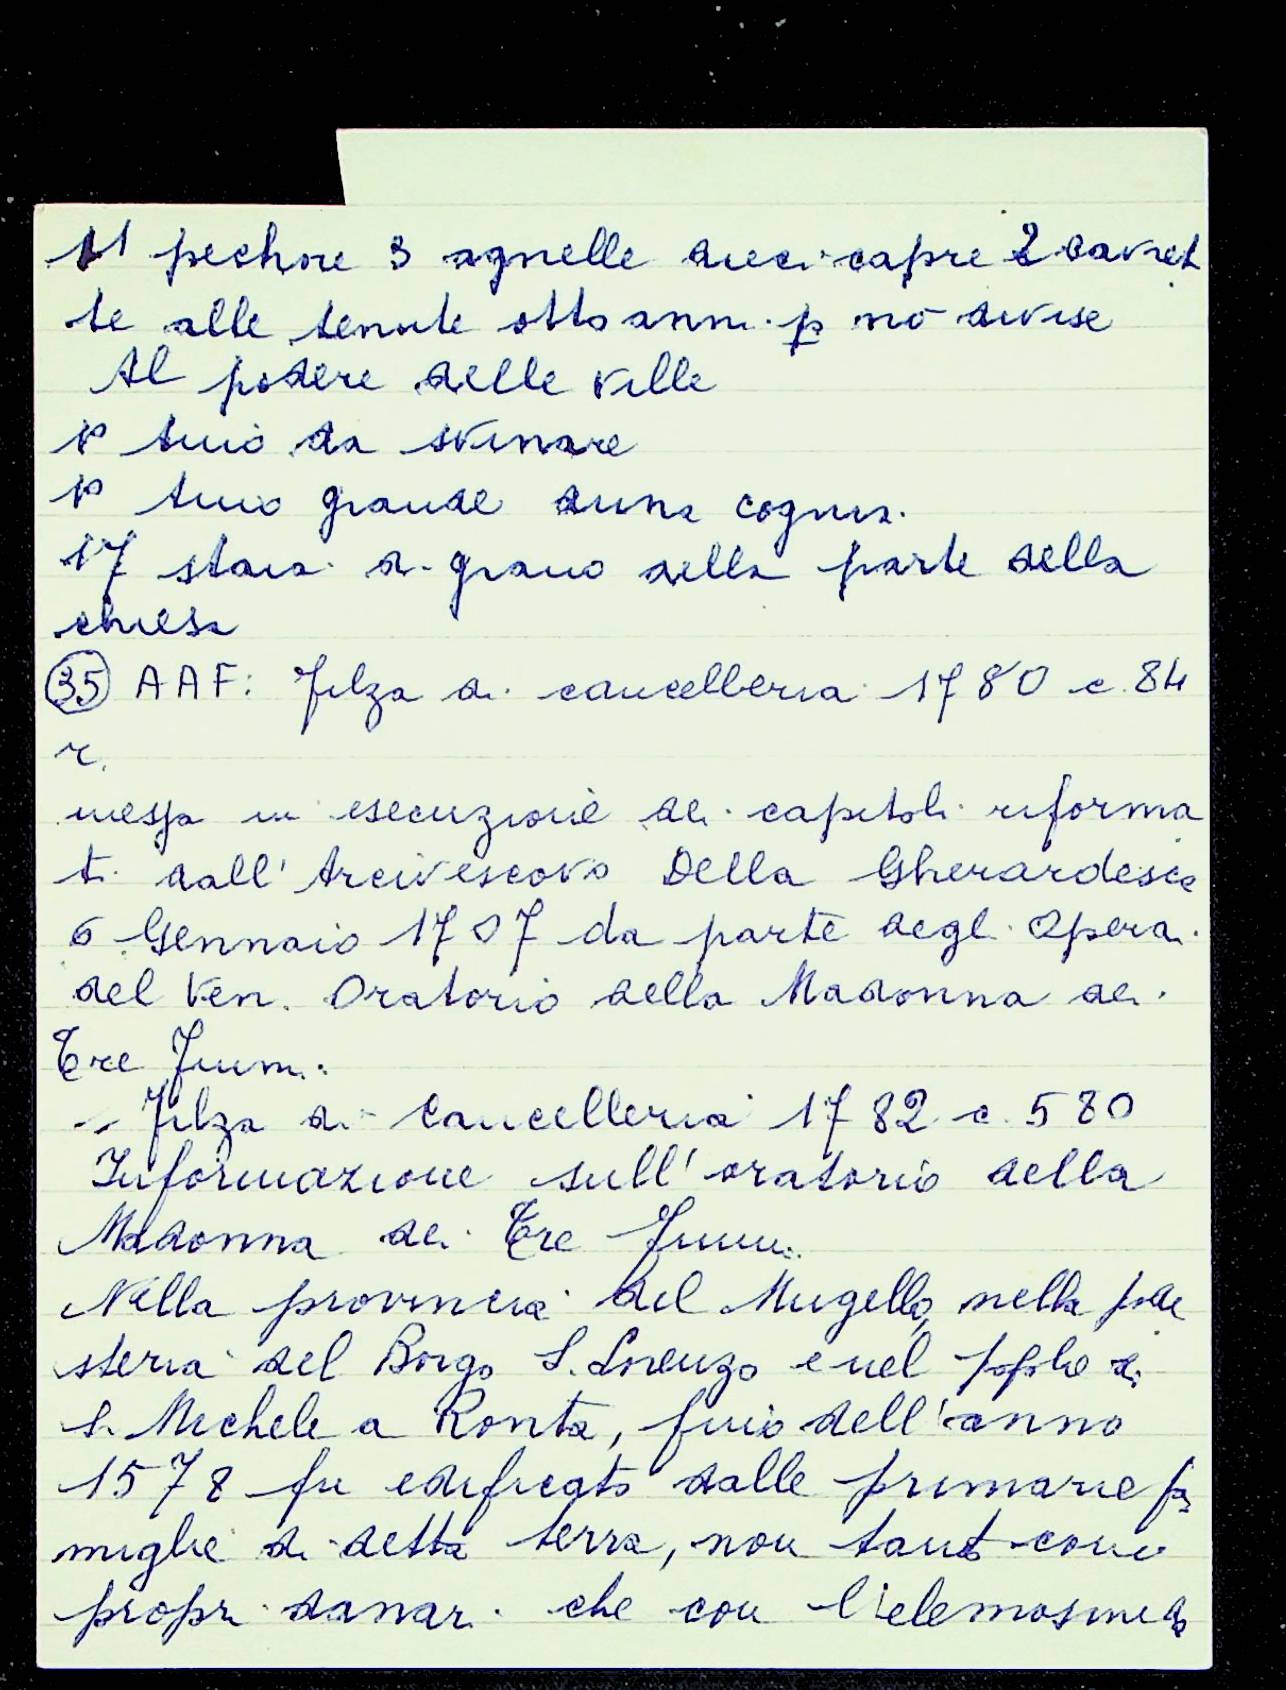 11 pechore 3 agnelle dieci capre 2 cavret
te alle tenute otto anni p no divise
Al podere delle valle
1º tino da svinare
1º tino grande duna cogna.
17 staia di grano della parte della
chiesa
(35) AAF: Filza di cancelleria 1780 c. 84
r.
messa in esecuzione dei capitoli riforma
ti dall'Arcivescovo Della Gherardesca
6 Gennaio 1707 da parte degli Operai
del Ven. Oratorio della Madonna dei
Tre Fiumi.
" Filza di Cancelleria 1782 c. 580
Informazione sull'oratorio della
Madonna dei Tre Fiumi.
Nella provincia del Mugello, nella pode
steria del Borgo S. Lorenzo e nel popolo di
S. Michele a Ronta, fino dell'anno
1578 fu edificato dalle primarie fa
miglie di detta terra, non tanto con i
propri danari che con l'elemosine di